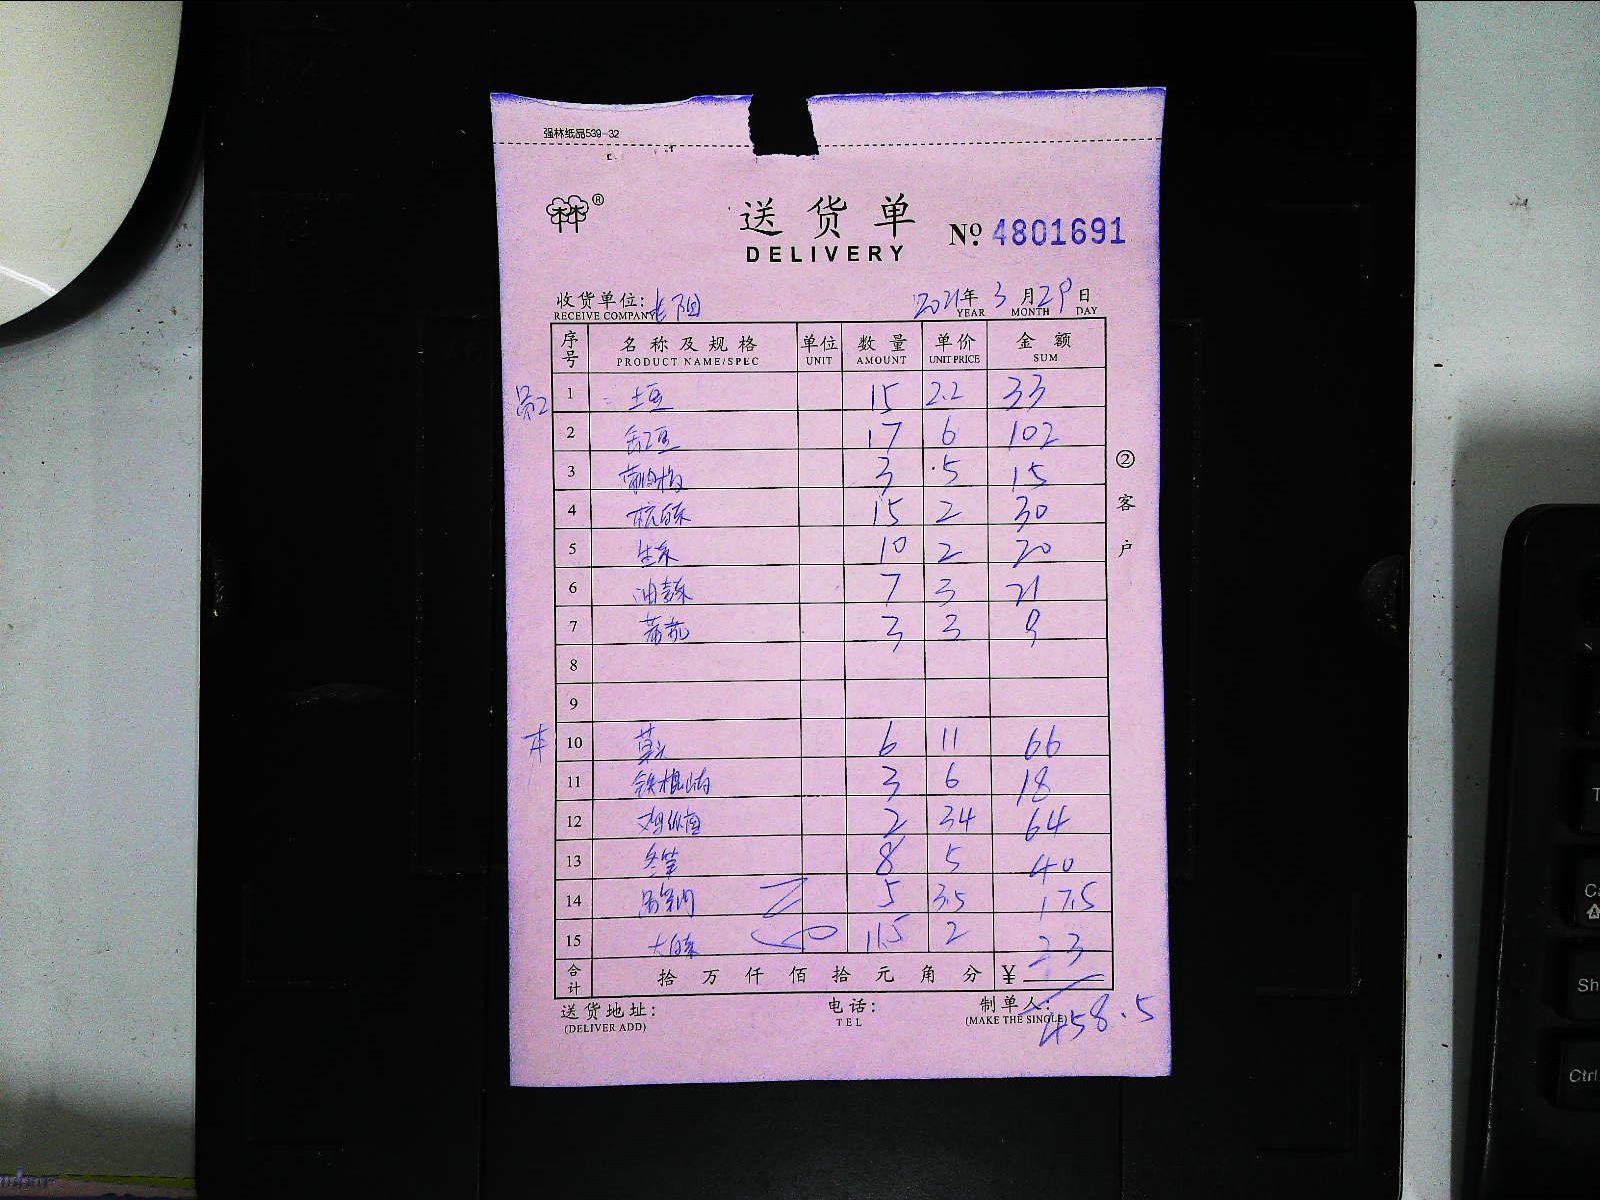 强林纸品539-32
送货单
DELIVERY
№ 4801691
收货单位: 2021年 3月29日
RECEIVE COMPANY YEAR MONTH DAY
序号 名称及规格 单位 数量 单价 金额
PRODUCT NAME/SPEC UNIT AMOUNT UNIT PRICE SUM
1 土豆 15 2.2 33
2 豆 17 6 102
3 3 5 15
4 杭白菜 15 2 30
5 生菜 10 2 20
6 油麦菜 7 3 21
7 3 3 9
8
9
本 10 6 11 66
11 铁棍山药 3 6 18
12 鸡纵菌 2 34 64
13 冬笋 8 5 40
14 5 3.5 17.5
15 大白菜 11.5 2 23
合计 拾万仟佰拾元角分 ¥
458.5
送货地址: 电话: 制单人:
(DELIVER ADD) TEL (MAKE THE SINGLE)
②客户